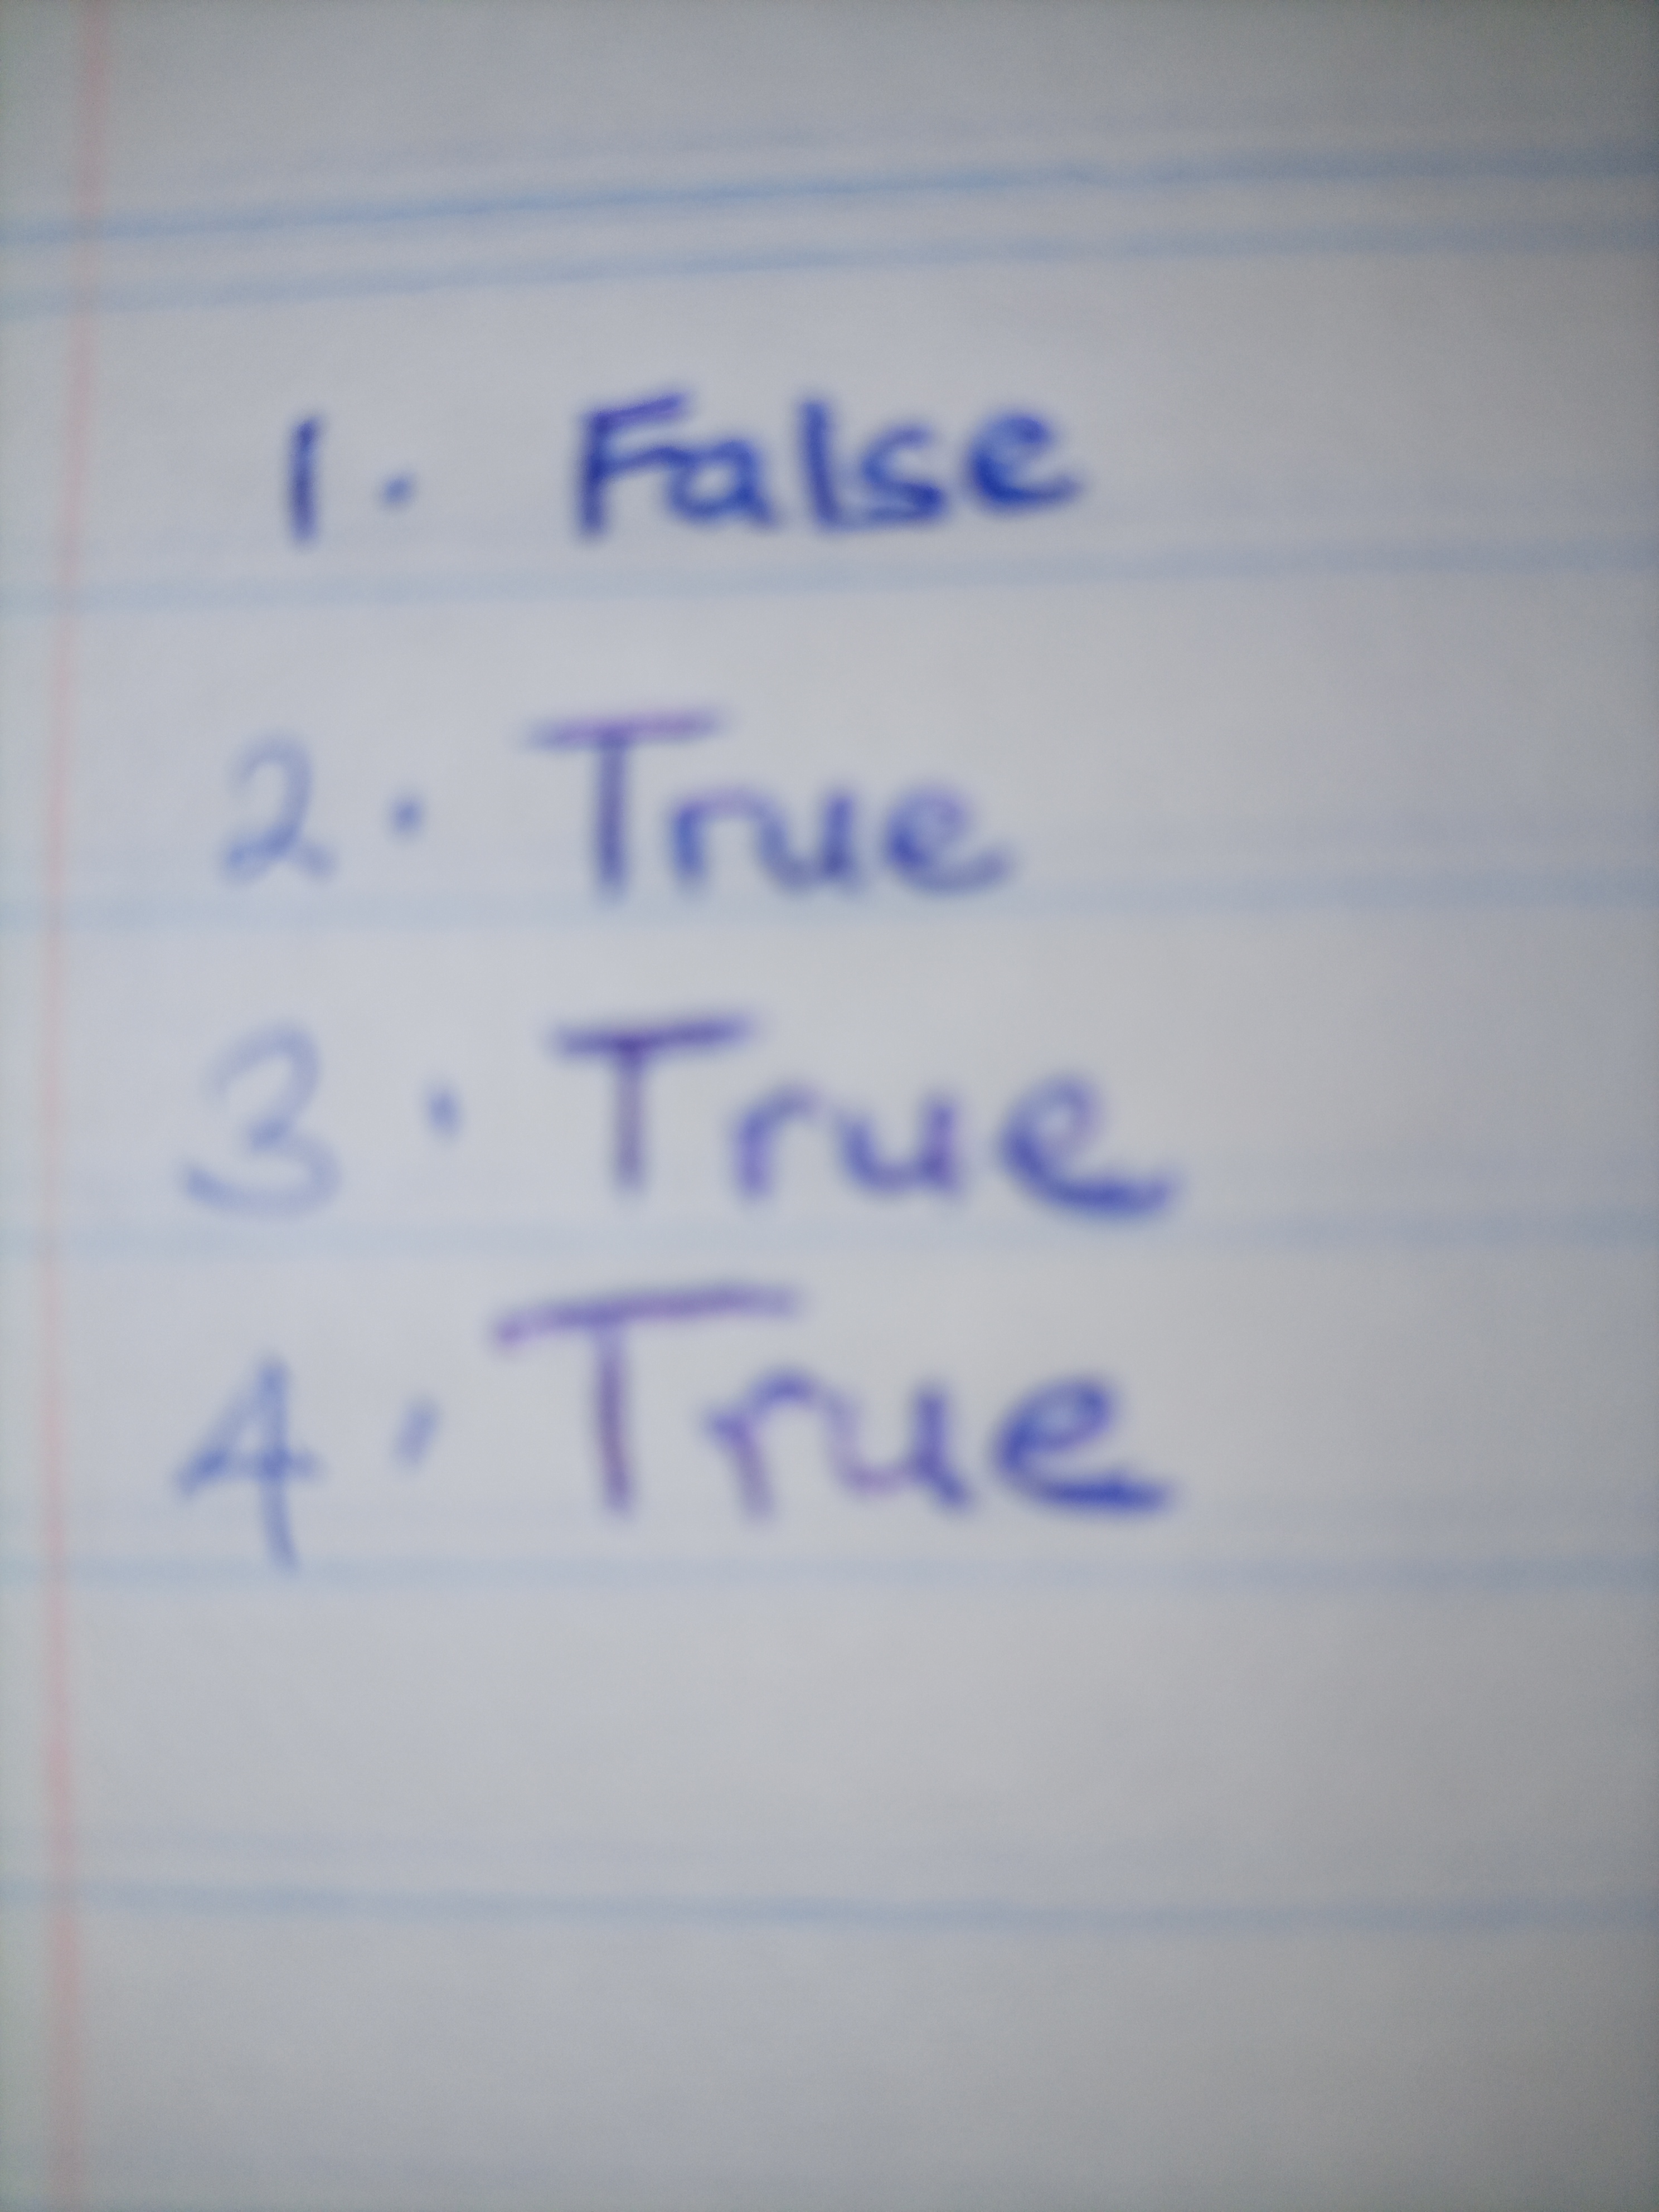 1. False
2. True
3. True
4. True